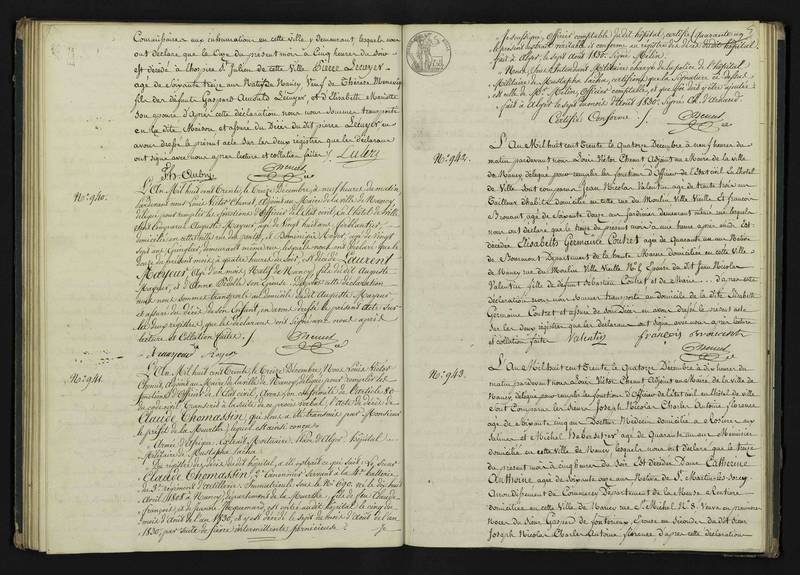 Commissaire aux estimations en cette ville y demeurant, lesquels nous
ont déclaré que le onze du présent mois à cinq heures du soir
est décédé à l'hospice St Julien de cette ville Pierre Lecuyer
agé de soixante treize ans natif de Nancy veuf de Thérèse
fils des défunts Gaspard Lecuyer, et d'Elisabeth Mariotte
son épouse, d'après cette déclaration nous nous sommes transporté
en la dite Maison et assuré du Décès du dit pierre Lecuyer en
avons dressé le présent acte sur les deux registres que les déclarants
ont signé avec nous après lecture et collation faites
Th. Aubry
No. 940.
L'An Mil huit cent Trente le Treize Décembre, à neuf heures du matin
pardevant nous Louis Victor Chenut Adjoint au Maire de la ville de Nancy
délégué pour remplir les fonctions d'Officier de l'Etat civil, en l'hôtel de ville,
sont comparus Auguste Mayeur, agé de vingt huit ans ferblantier,
domicilié en cette ville, et Dominique Royer, agé de vingt
sept ans, demeurant même rue, lesquels nous ont déclaré que le
douze du présent mois, à quatre heures du soir, est décédé Laurent
Mayeur, Agé d'un mois, Natif de Nancy, fils du dit Auguste
Mayeur, et d'Anne son Epouse. D'après cette déclaration
nous nous sommes transporté au domicile du dit Auguste Mayeur
et assuré du décès de son Enfant, en avons dressé le présent Acte sur
les deux registres que les déclarants ont signé avec nous après
lecture et Collation faites.
A mayeur Royer
No. 941.
L'An Mil huit cent Trente, le Treize Décembre, Nous Louis Victor
Chenut, Adjoint au Maire de la ville de Nancy délégué pour remplir les
fonctions d'Officier de l'Etat civil, Avons, en conformité de l'article 80
du code civil Transcrit à la suite de ce procès verbal, l'acte de décès de
Claude Thomassin, qui nous a été transmis par Monsieur
le préfet de la Meurthe, lequel est ainsi conçu
Armée d'Afrique, Extrait Mortuaire. Place d'Alger hôpital
Militaire de Mustapha Pacha
Du registre des Décès du dit hôpital, a été extrait ce qui suit: Le Sieur
Claude Thomassin, 2e Canonnier Servant à la 4e batterie
du 3e régiment d'Artillerie, Immatriculé sous le No. 690, né le dix huit
Avril 1808 à Nancy, Département de la Meurthe, fils de feu Claude
françois, et de Jacquemard, est entré au dit hôpital le cinq du
mois d'Août de l'an 1830, et y est décédé le sept du mois d'Août de l'an
1830, par suite de fièvre intermittente pernicieuse.
Je
Soussigné, Officier comptable du dit hôpital, certifie
le présent extrait véritable et conforme au registre des décès du dit hôpital.
fait à Alger le sept Août 1830. Signé Melin.
Nous, Sous Intendant Militaire chargé de la police de l'hôpital
Militaire de Mustapha Pacha, certifions que la Signature ci dessus
est celle de Mr. Melin, Officier comptable, et que foi doit y être ajoutée
fait à Alger le sept du mois d'Août 1830. Signé
Certifié Conforme
No. 942.
L'An Mil huit cent Trente le Quatorze Décembre à neuf heures du
matin pardevant nous Louis Victor Chenut Adjoint au Maire de la ville
de Nancy délégué pour remplir les fonctions d'Officier de l'Etat civil En l'hôtel
de Ville sont comparus Jean Nicolas Valentin agé de trente trois ans
Tailleur d'habits domicilié en cette ville rue du Moulin Ville Vieille Et françois
Brouant agé de soixante douze ans jardinier demeurant même rue lesquels
nous ont déclaré que le treize du présent mois à onze heures après midi est
décédée Elisabeth Germaine Coutret agée de Quarante un ans Native
de Département de la haute Marne domiciliée en cette ville
de Nancy rue du Moulin Ville Vieille No. 6 Epouse du dit Jean Nicolas
Valentin fille de défunt Sebastien Coutret et de Marie D'après cette
déclaration nous nous sommes transporté au domicile de la dite Elisabeth
Germaine Coutret et assuré de son Décès en avons dressé le présent acte
sur les deux registres que les déclarants ont signé avec nous après lecture
et collation faites Valentin françois
No. 943.
L'An Mil huit cent Trente le Quatorze Décembre à dix heures du
matin pardevant nous Louis Victor Chenut Adjoint au Maire de la ville de
Nancy délégué pour remplir les fonctions d'Officier de l'Etat civil en l'hôtel de ville
sont Comparus les Sieurs Joseph Nicolas Charles Antoine florence
agé de soixante cinq ans Docteur en Médecin domicilié à Rosières aux
Salines et Michel Habersetzer agé de Quarante un ans Menuisier
domicilié en cette ville de Nancy lesquels nous ont déclaré que le treize
du présent mois à cinq heures du soir Est décédée Dame Catherine
Anthoine agée de soixante onze ans Native de St. Martin
Arrondissement de Commercy Département de la Meuse
domiciliée en cette Ville de Nancy rue St. Michel No. 8. Veuve en premières
noces du sieur Gaspard de Epouse en secondes du dit sieur
Joseph Nicolas Charles Antoine florence D'après cette déclaration